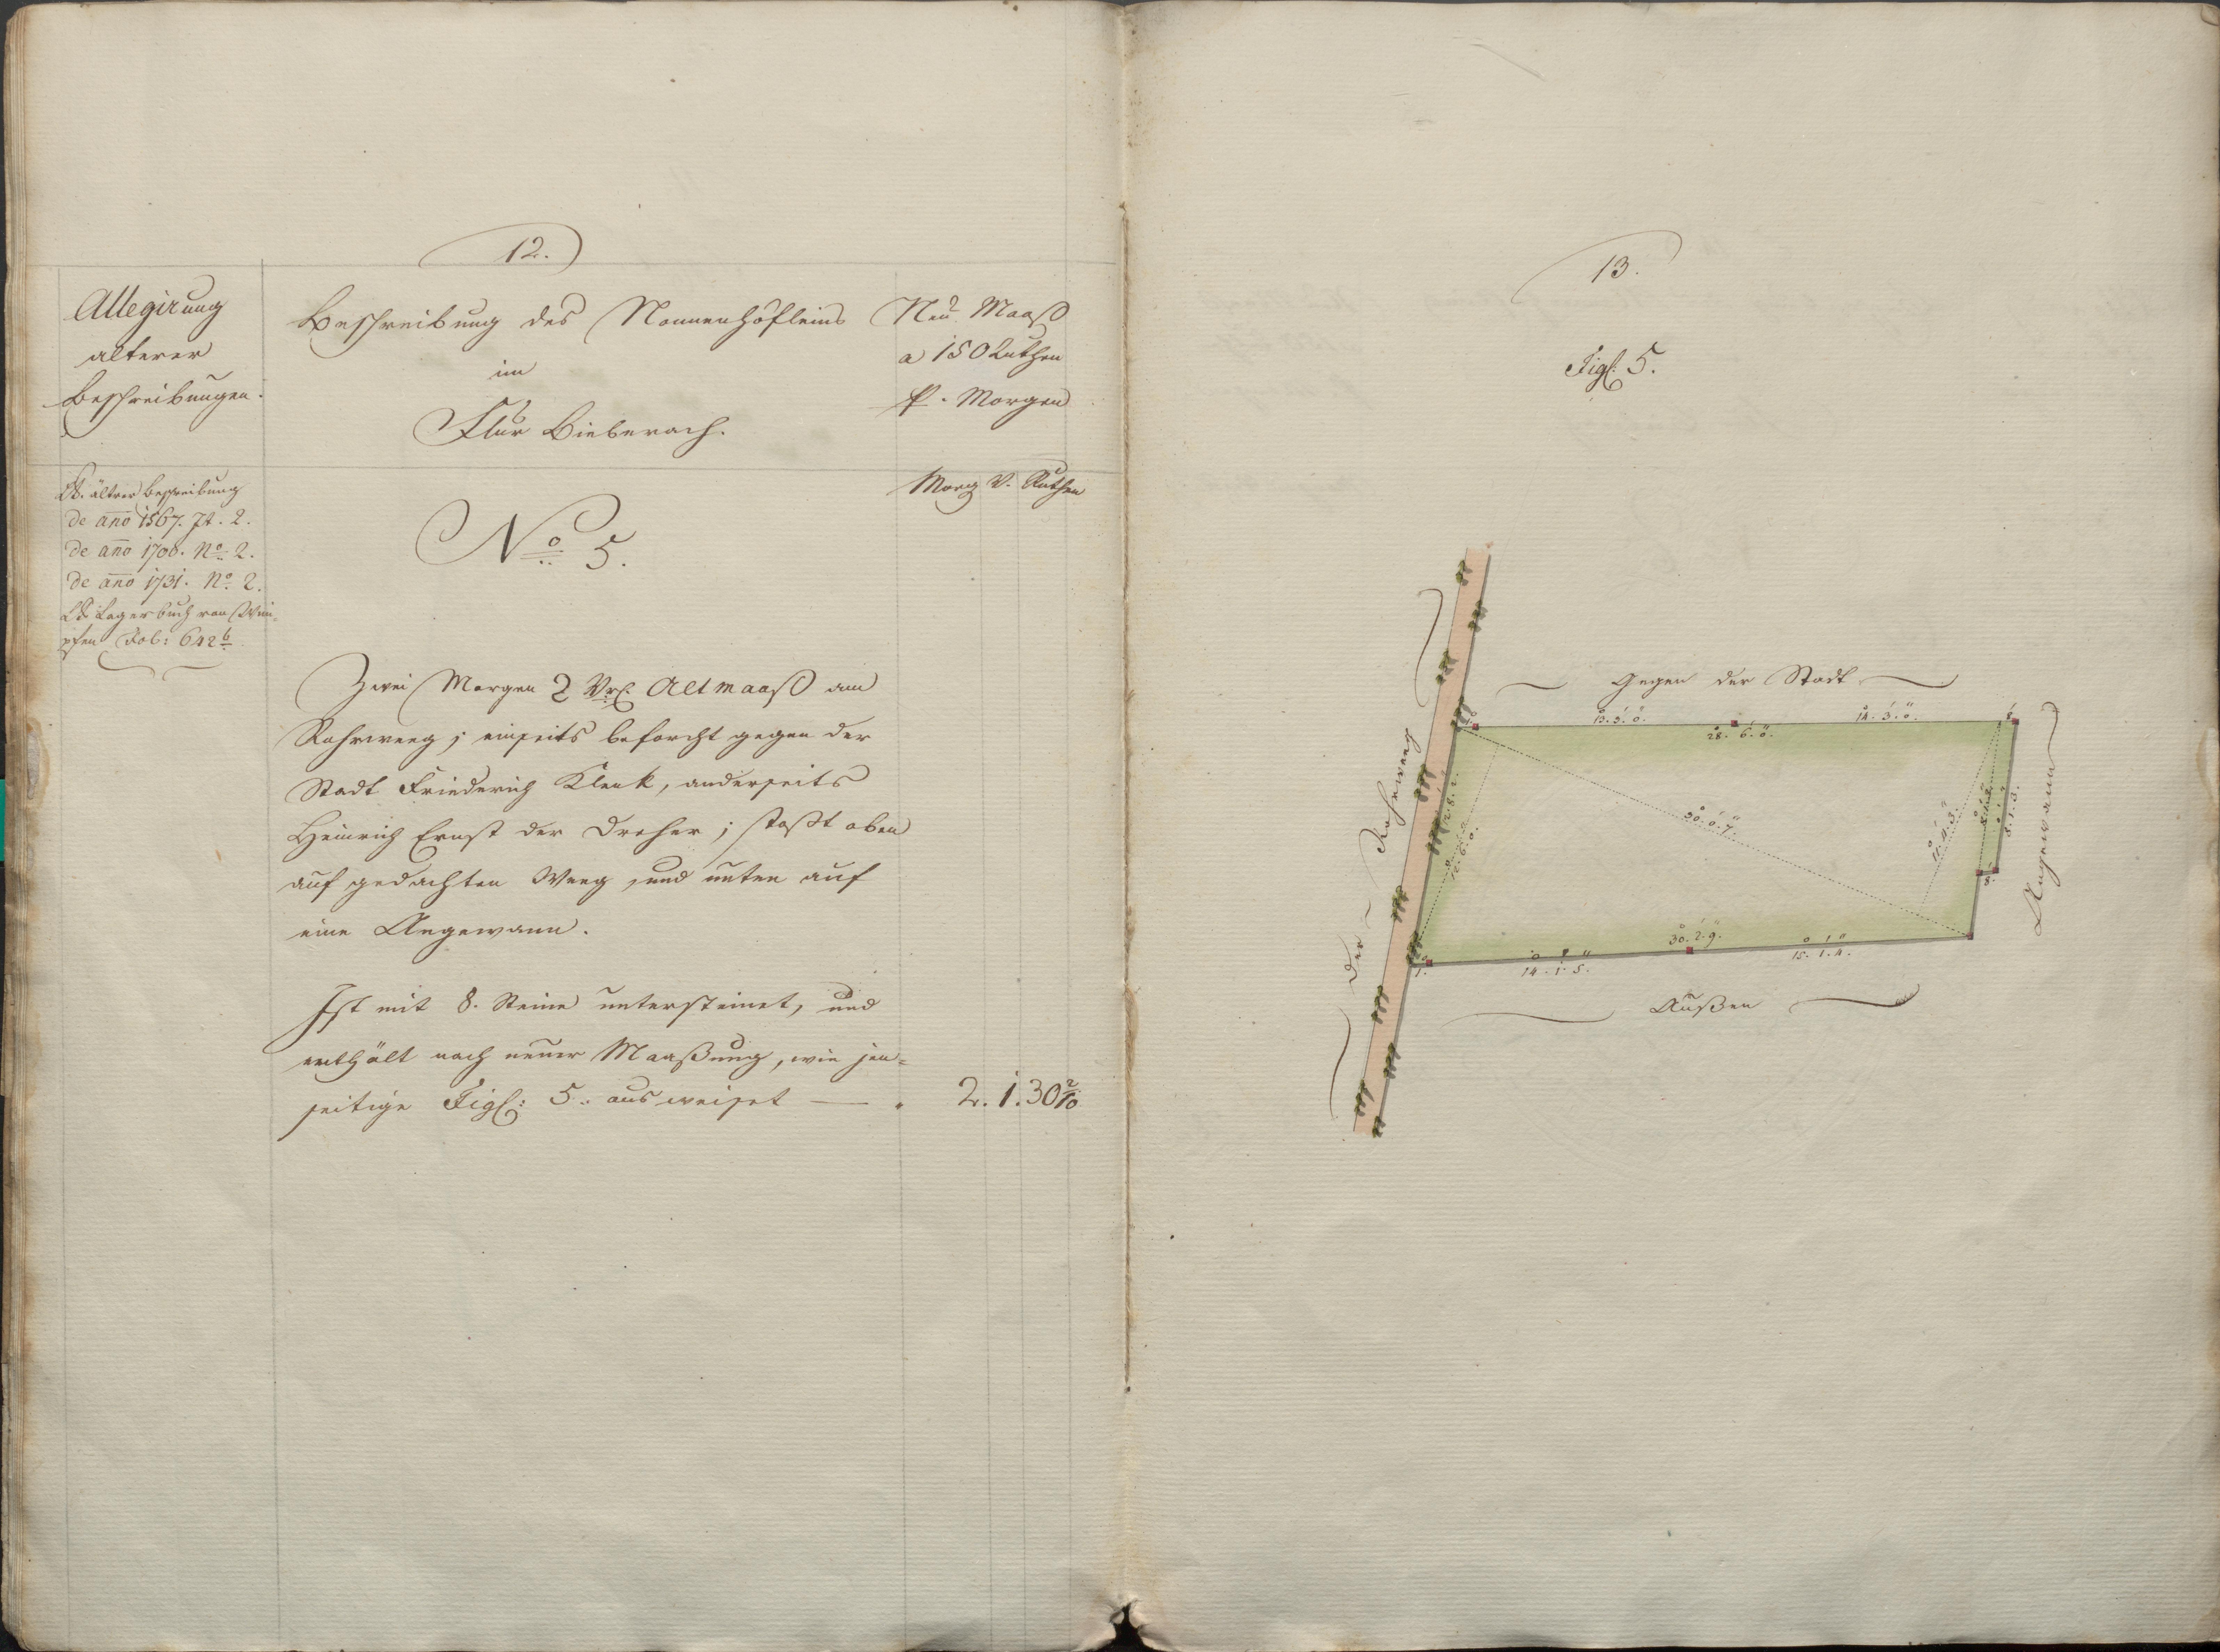 12.
Allegirung
älterer
Beschreibungen.
Beschreibung des Nonnenhöfleins
im
Flur Bieberach.
Neu Maas
a 150 Ruthen
p. Morgen
Morg V. Ruthen
Lt. ältrer Beschreibung
de año 1567. It. 2.
de año 1700. No. 2.
de año 1731. No. 2.
Lt. Lagerbuch von Wim-
pfen Fol: 642 b
No 5.
Zwei Morgen 2 Vrl. Altmaas am
Rohrweeg; einseits beforcht gegen der
Stadt Friederich Klenk, anderseits
Heinrich Ernst der Dreher; stoßt oben
auf gedachten Weeg, und unten auf
eine Angewann.
Ist mit 8. Steine untersteinet, und
enthält nach neuer Maaßung, wie jen-
seitige Figl: 5. ausweiset — . 2. 1. 30 2/10
13.
Figl: 5.
Gegen der Stadt
13. 3. 0.
14. 3. 0.
28. 6. 0.
der Rohrweeg
12. 6. 0.
30. 0. 7.
11. 0. 3.
8. 1. 3.
Angewann
30. 2. 9.
14. 1. 5.
15. 1. 4.
1.
Außen